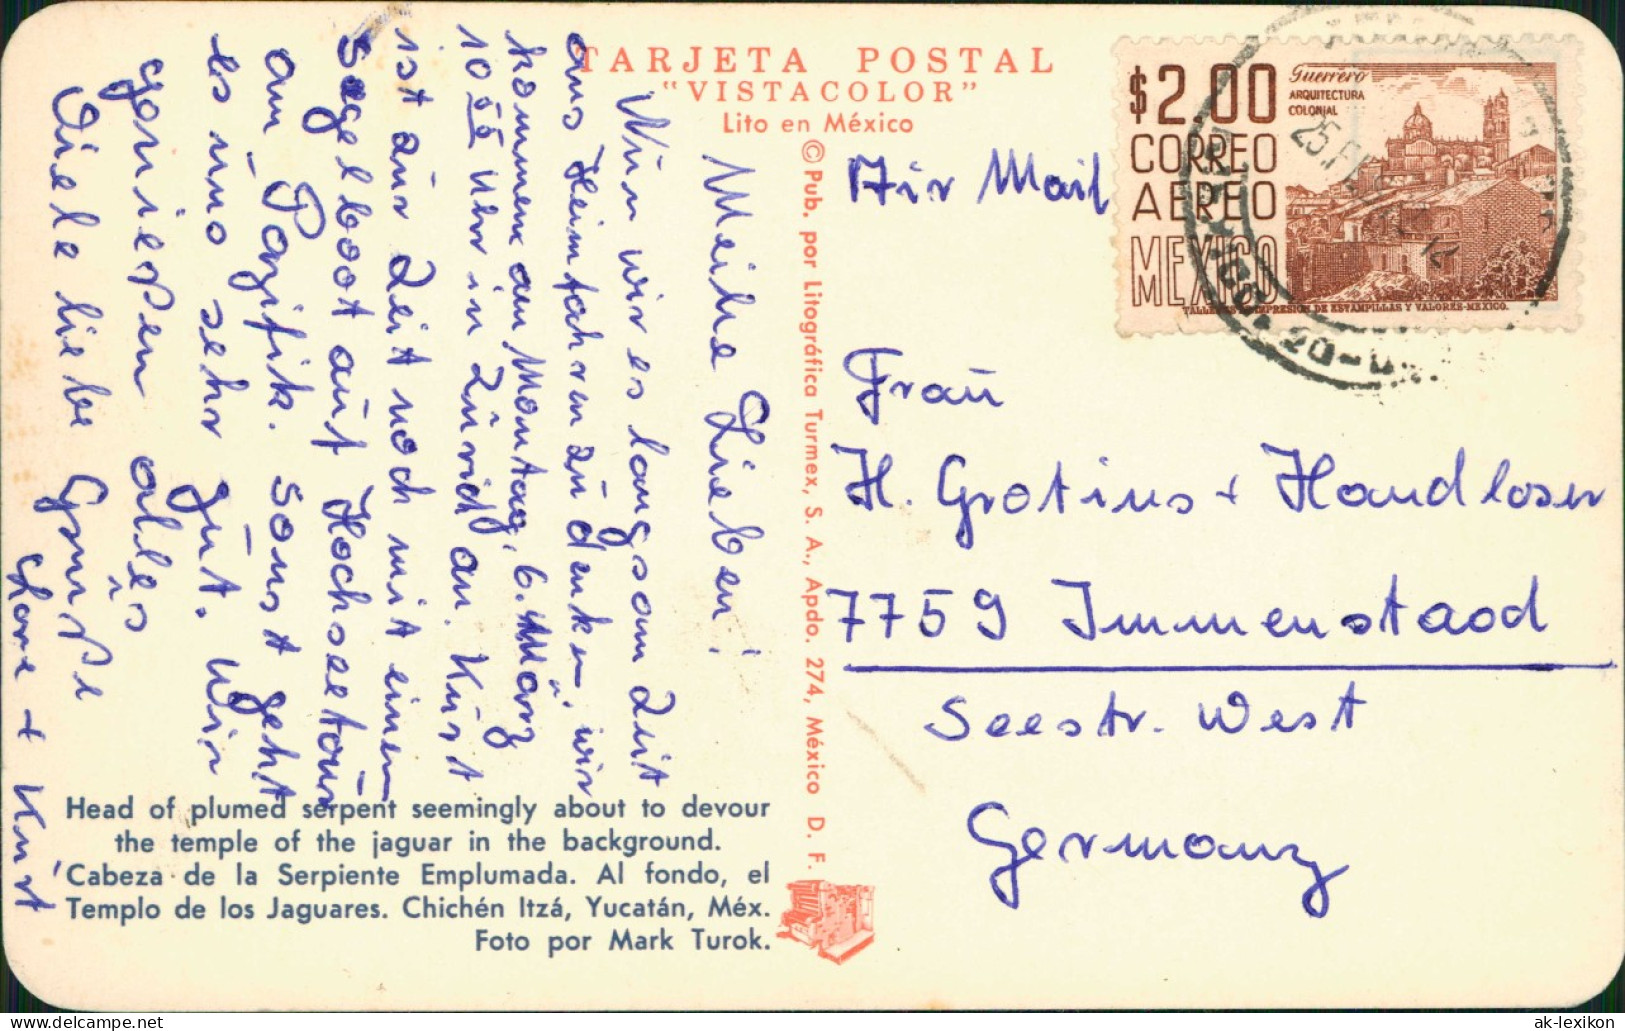 TARJETA POSTAL
"VISTACOLOR"
Lito en México
© Pub. por Litográfica Turmex, S. A., Apdo. 274, México D. F.
Meine Lieben!
Nun wir es langsam Zeit
ans Heimfahren zu denken, wir
kommen am Montag, 6. März
10 55 Uhr in Zürich an. Kurt
ist zur Zeit noch mit einem
Segelboot auf Hochseetour
am Pazifik. Sonst geht
es uns sehr gut. Wir
genießen alles
Viele liebe Grüße
Lore + Kurt
Air Mail
Frau
H. Grotius + Handloser
7759 Immenstaad
Seestr. West
Germany
$2.00
CORREO
AEREO
MEXICO
Guerrero
ARQUITECTURA
COLONIAL
TALLERES DE IMPRESION DE ESTAMPILLAS Y VALORES-MEXICO.
Head of plumed serpent seemingly about to devour
the temple of the jaguar in the background.
Cabeza de la Serpiente Emplumada. Al fondo, el
Templo de los Jaguares. Chichén Itzá, Yucatán, Méx.
Foto por Mark Turok.
ak-lexikon